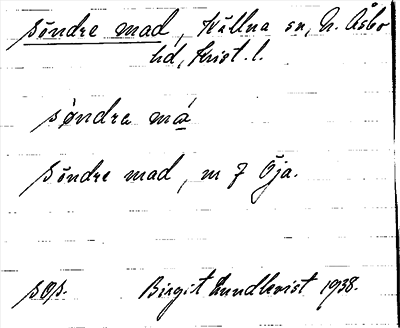 Söndre mad, Källna sn, N. Åsbo
hd, Krist. l.
söndra má
Söndre mad, nr 7 Öja.
sØs. Birgit Lundkvist 1938.